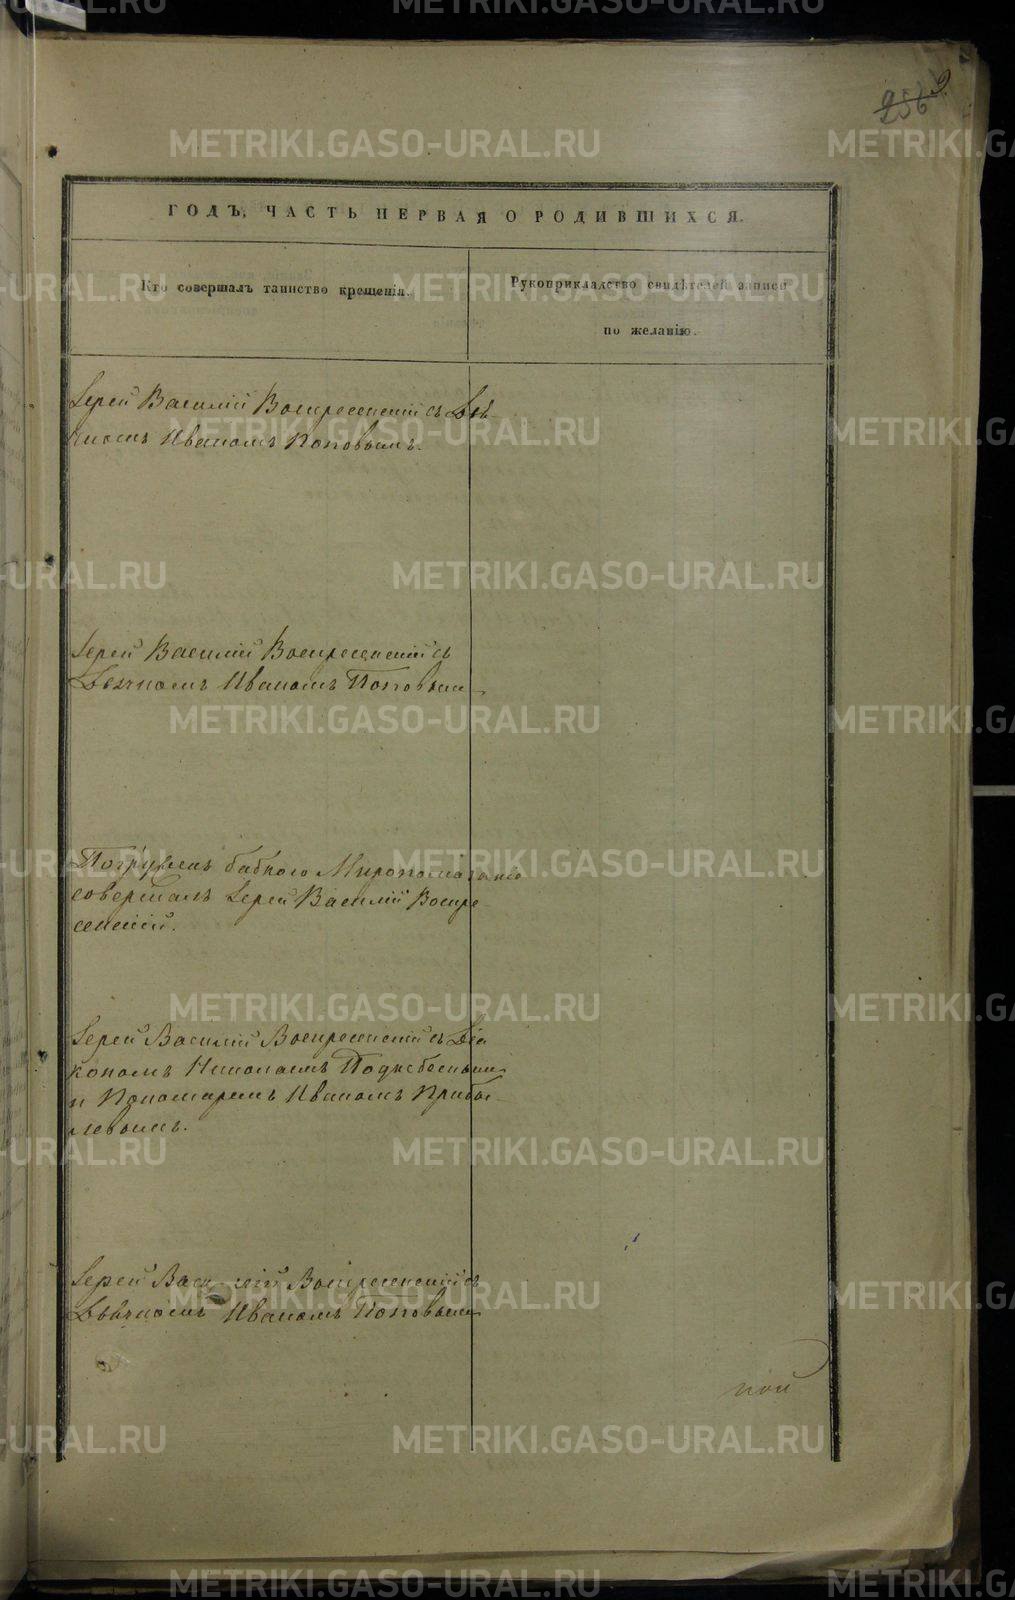 256 9
ГОДЪ, ЧАСТЬ ПЕРВАЯ О РОДИВШИХСЯ.
Кто совершалъ таинство крещенія.
Рукоприкладство свидѣтелей записи
по желанію.
Іерей Василій Воскресенскій съ Дья-
чкомъ Иваномъ Поповымъ.
Іерей Василій Воскресенскій съ
Дьячкомъ Иваномъ Поповым
Погружен бабкою Миропомазание
совершалъ Іерей Василій Воскре-
сенскій.
Іерей Василій Воскресенскій съ Діа
кономъ Николаемъ
и Пономаремъ Иваномъ Прибы-
левымъ.
Іерей Василій Воскресенскій съ
Дьячкомъ Иваномъ Поповым
пой
METRIKI.GASO-URAL.RU